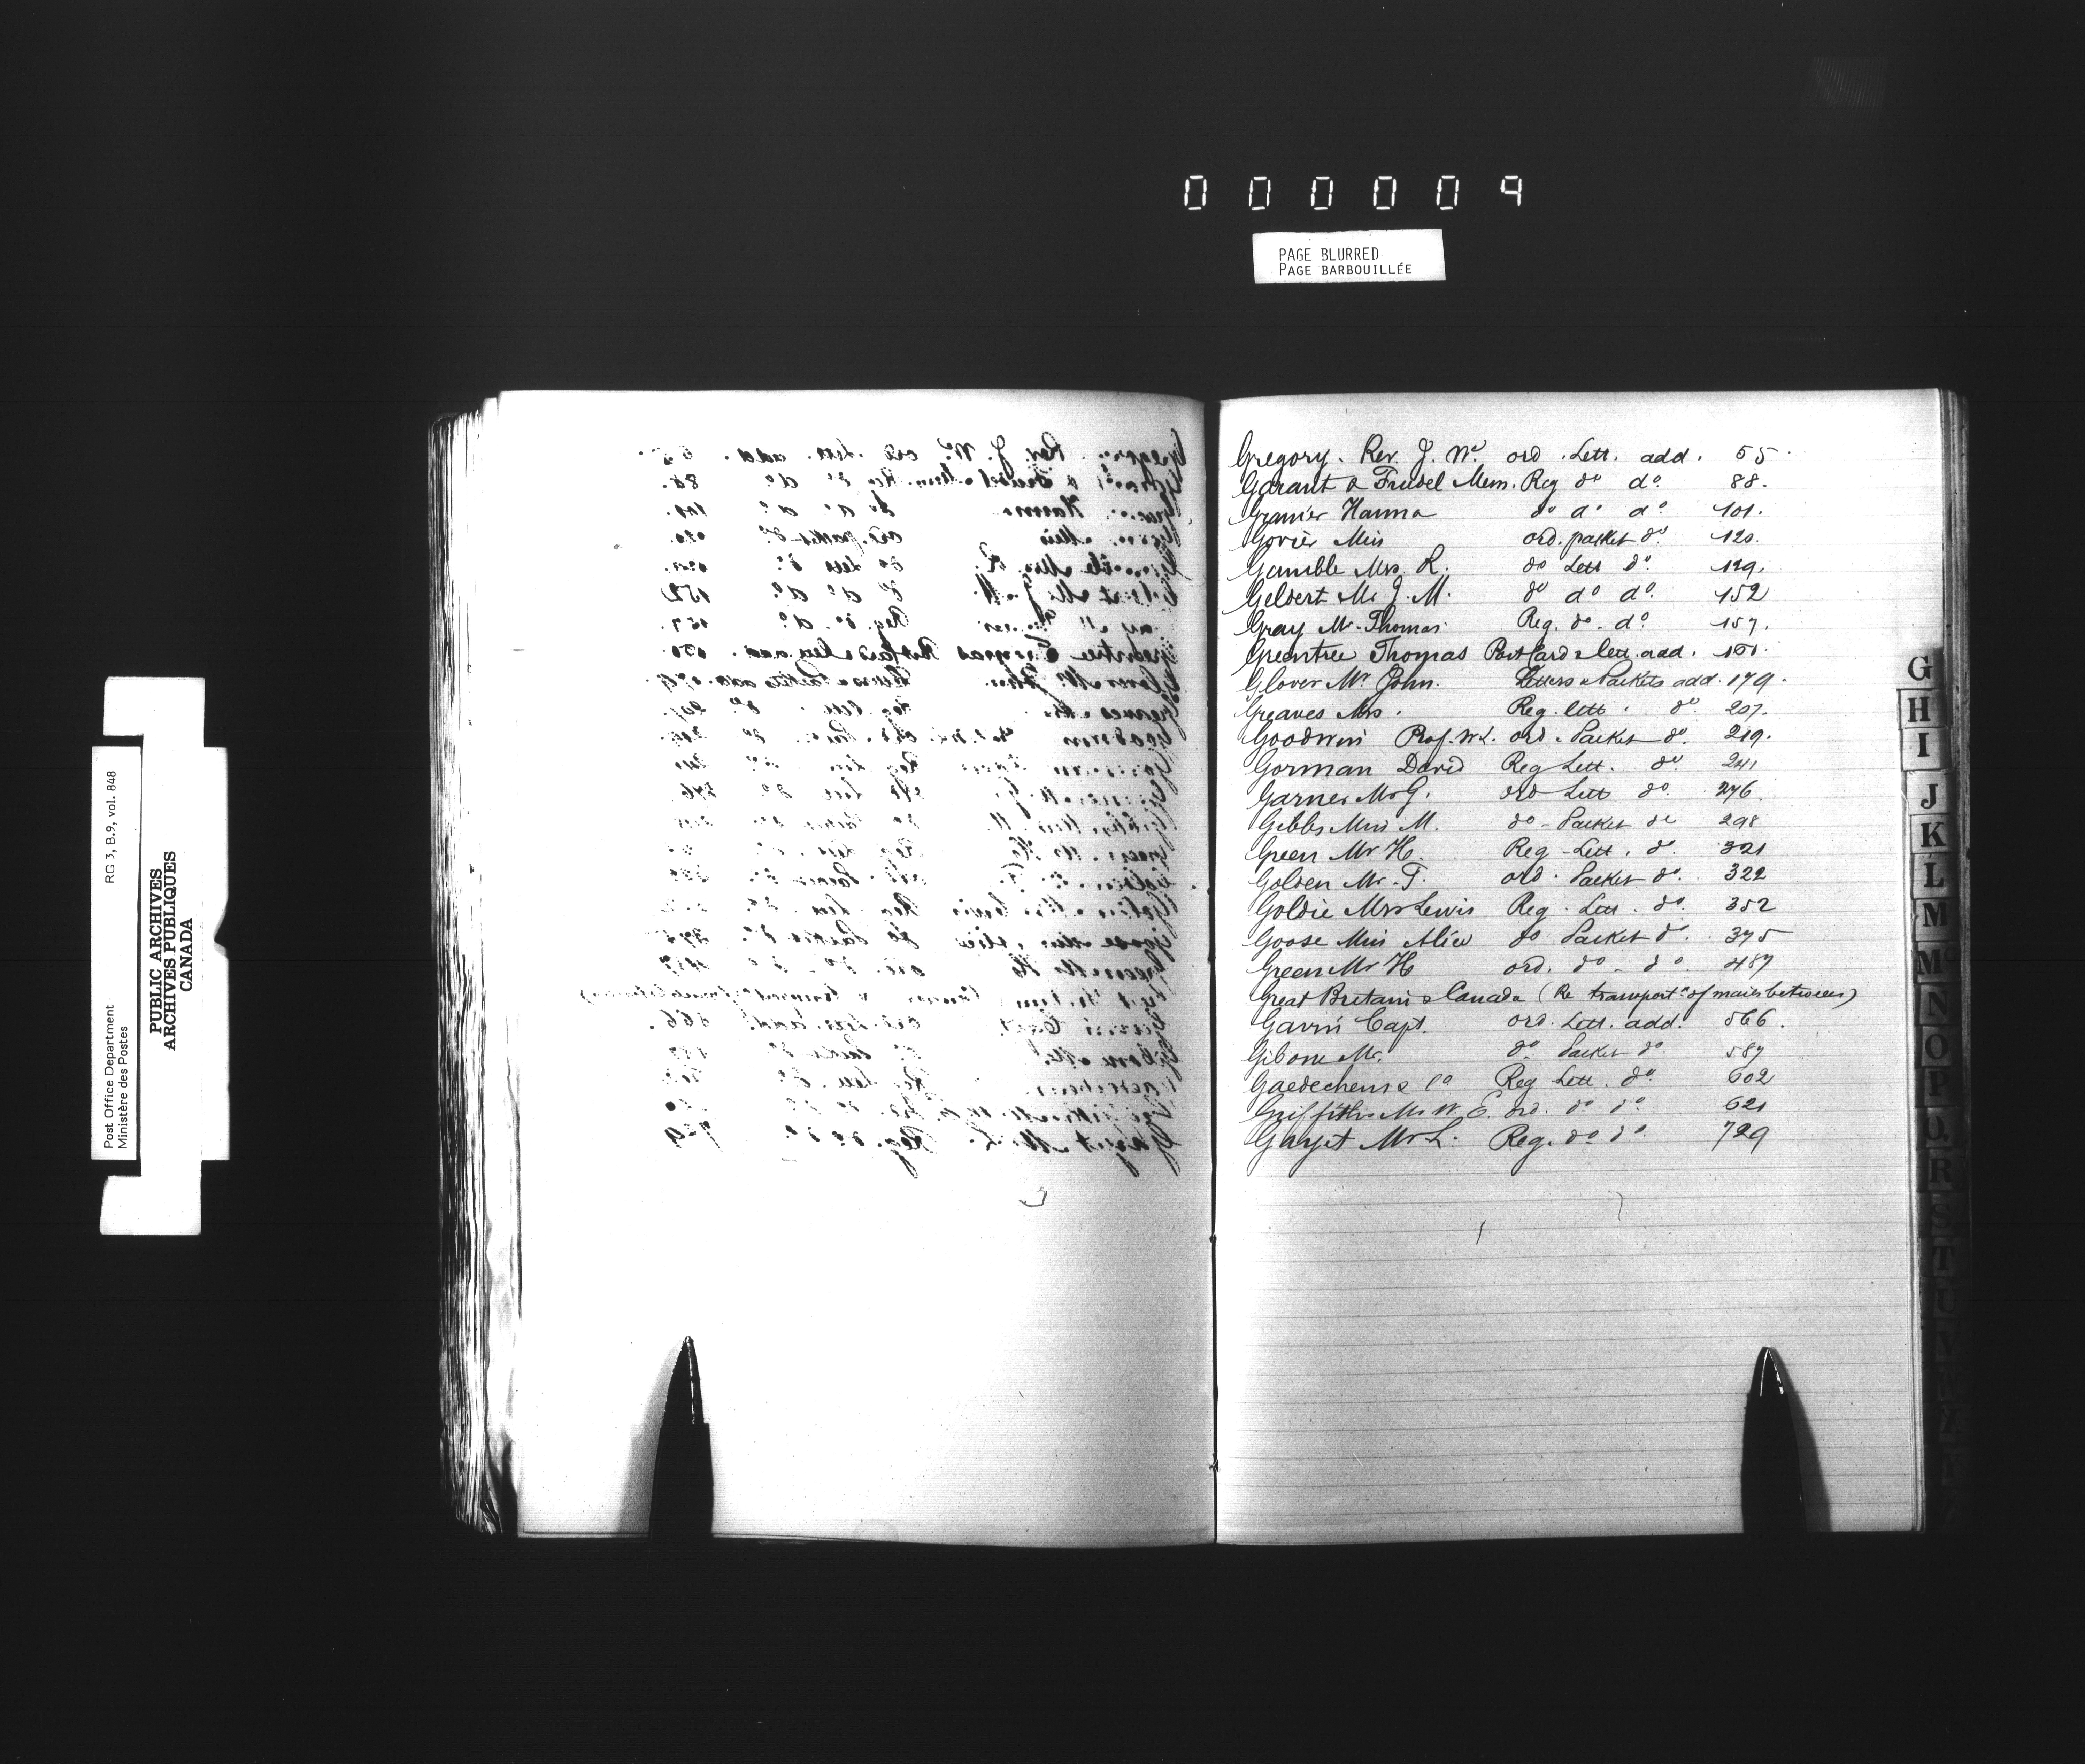 000009
PAGE BLURRED
PAGE BARBOUILLÉE
Gregory. Rev. J. Wᵐ ord. Lett. add. 55.
Garant & Trudel Mess. Reg dᵒ dᵒ 88.
Granier Hanna dᵒ dᵒ dᵒ 101.
Govier Miss ord. packet dᵒ 120.
Gamble Mrs. R. dᵒ Lett dᵒ 129.
Geldert Mr J. M. dᵒ dᵒ dᵒ 152
Gray Mr. Thomas Reg. dᵒ. dᵒ 157.
Greentree Thomas Post Card & lett. add.
Glover Mr John. Letters & Packets add. 179.
Greaves Mrs. Reg. lett. dᵒ 207.
Goodwin Prof. W.L. ord. Packet dᵒ. 219.
Gorman David Reg Lett. dᵒ 241
Garner Mr G. ord Lett dᵒ. 276.
Gibbs Miss M. dᵒ - Packet dᵒ 298
Green Mr H. Reg Lett. dᵒ. 321
Golden Mr. T. ord. Packet dᵒ. 322
Goldie Mrs Lewis Reg. Lett. dᵒ. 352
Goose Miss Alice dᵒ Packet dᵒ. 375
Green Mr H ord. dᵒ - dᵒ. 487
Great Britain & Canada (Re transportⁿ of mails between)
Gavin Capt. ord. Lett. add. 566.
Gibone Mr. dᵒ Packet dᵒ 587
Gaedechens & Cᵒ Reg Lett. dᵒ. 602
Griffiths Mr W. E. ord. dᵒ dᵒ 621
Mr L. Reg. dᵒ dᵒ. 729
G
H
I
J
K
L
M
Mᶜ
N
O
P
Q
R
S
T
Post Office Department
Ministère des Postes
RG 3, B.9, vol. 848
PUBLIC ARCHIVES
ARCHIVES PUBLIQUES
CANADA